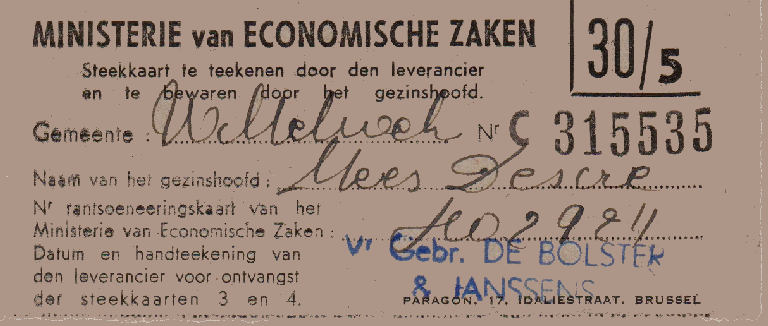 MINISTERIE van ECONOMISCHE ZAKEN
30/5
Steekkaart te teekenen door den leverancier
en te bewaren door het gezinshoofd.
Gemeente : Nr C 315535
Naam van het gezinshoofd : Mees Desire
Nr rantsoeneeringskaart van het
Ministerie van Economische Zaken : 402924
Datum en handteekening van
den leverancier voor ontvangst
der steekkaarten 3 en 4.
Vr Gebr. DE BOLSTER
& JANSSENS
PARAGON, 17, IDALIESTRAAT, BRUSSEL